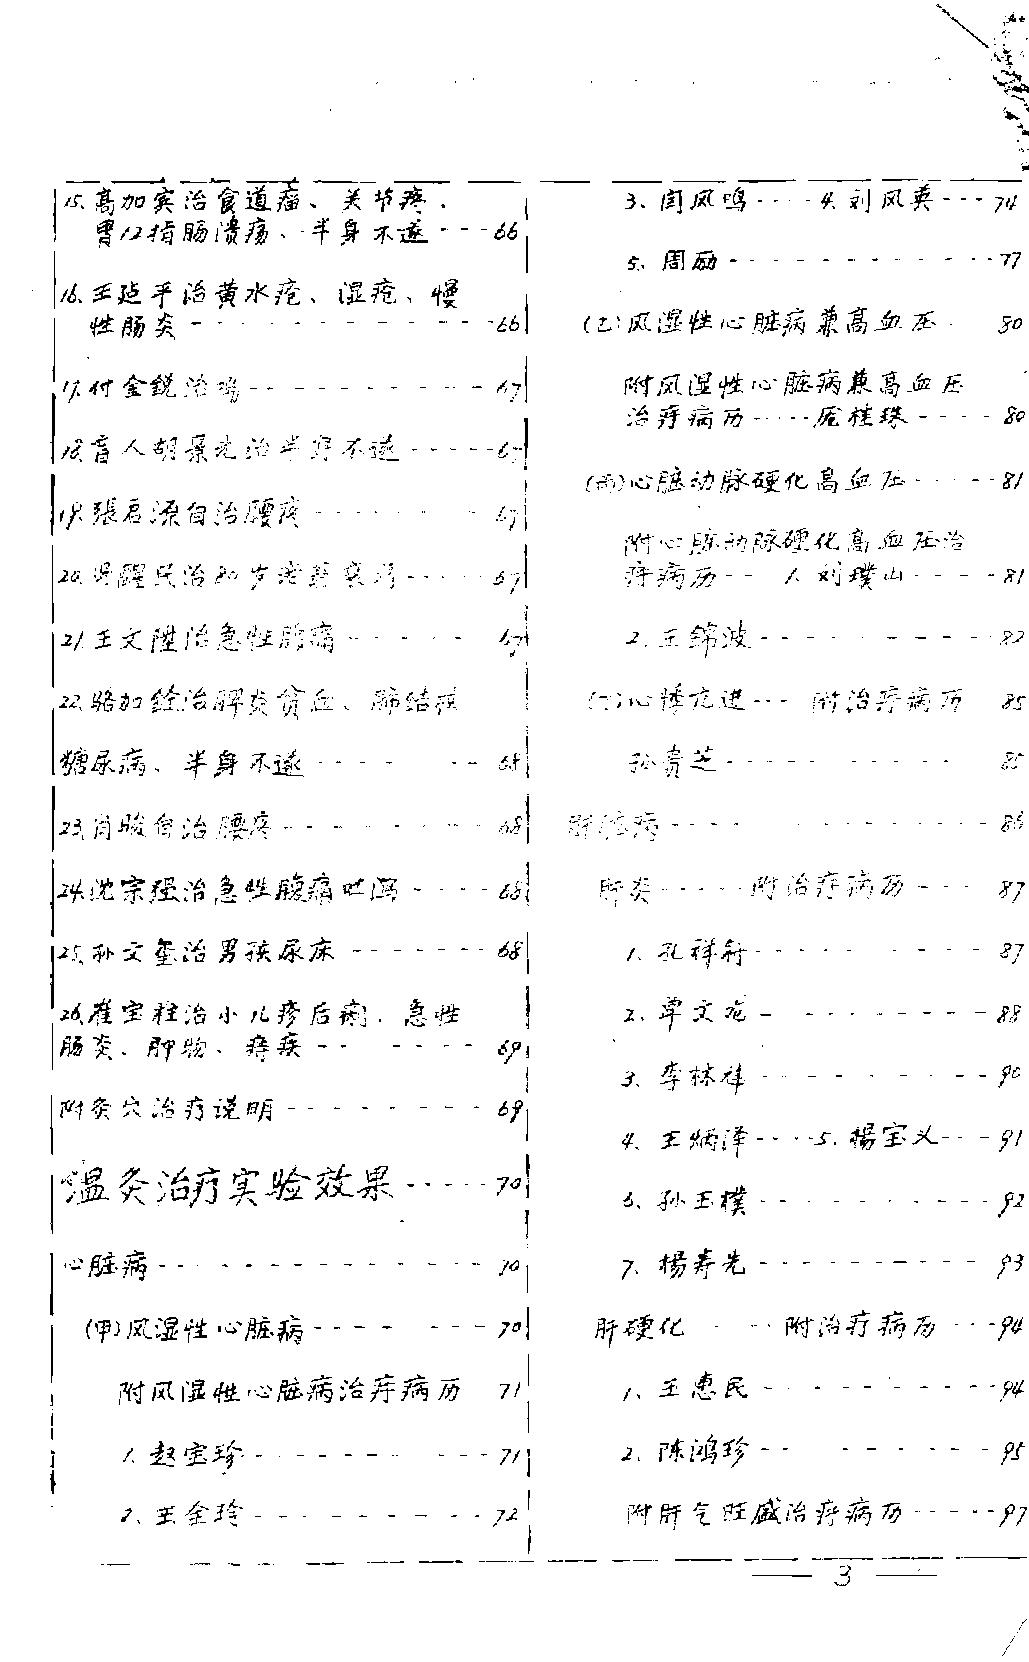 15.高加宾治食道癌、关节疼、
胃12指肠溃疡、半身不遂---66
16.王延平治黄水疮、湿疮、慢
性肠炎----------66
17.付金锐治-------67
18.盲人胡景先治半身不遂-----67
19.張君源自治腰疼------67
20.醒民治80岁-----67
21.王文陞治急性腹痛-----67
22.骆加銓治脾炎贫血、肺结核
糖尿病、半身不遂------68
23.肖骏自治腰疼-------68
24.沈宗强治急性腹痛吐泻----68
25.孙文玺治男孩尿床------68
26.崔宝柱治小儿疹后痢、急性
肠炎、肿物、痔疾------69
附灸穴治疗说明-------69
温灸治疗实验效果-----70
心脏病-----------70
(甲)风湿性心脏病-------70
附风湿性心脏病治疗病历 71
1.赵宝珍--------71
2.王金玲--------72
3、闫凤鸣----4.刘风英---74
5、周励---------77
(乙)风湿性心脏病兼高血压 80
附风湿性心脏病兼高血压
治疗病历-----庞桂珠----80
(丙)心脏动脉硬化高血压----81
附心脏动脉硬化高血压治
疗病历-- 1.刘璞山----81
2.王錦波--------82
(丁)心悸亢进--- 附治疗病历 85
孙贵芝--------- 85
肝脏病----------86
肝炎-----附治疗病历---87
1、孔祥-------87
2、覃文龙--------88
3、李林祥--------90
4、王炳泽----5.楊宝义---91
6、孙玉樸--------92
7、楊寿先--------93
肝硬化----附治疗病历---94
1、王惠民--------94
2、陈鸿珍--------95
附肝气旺盛治疗病历-----97
3